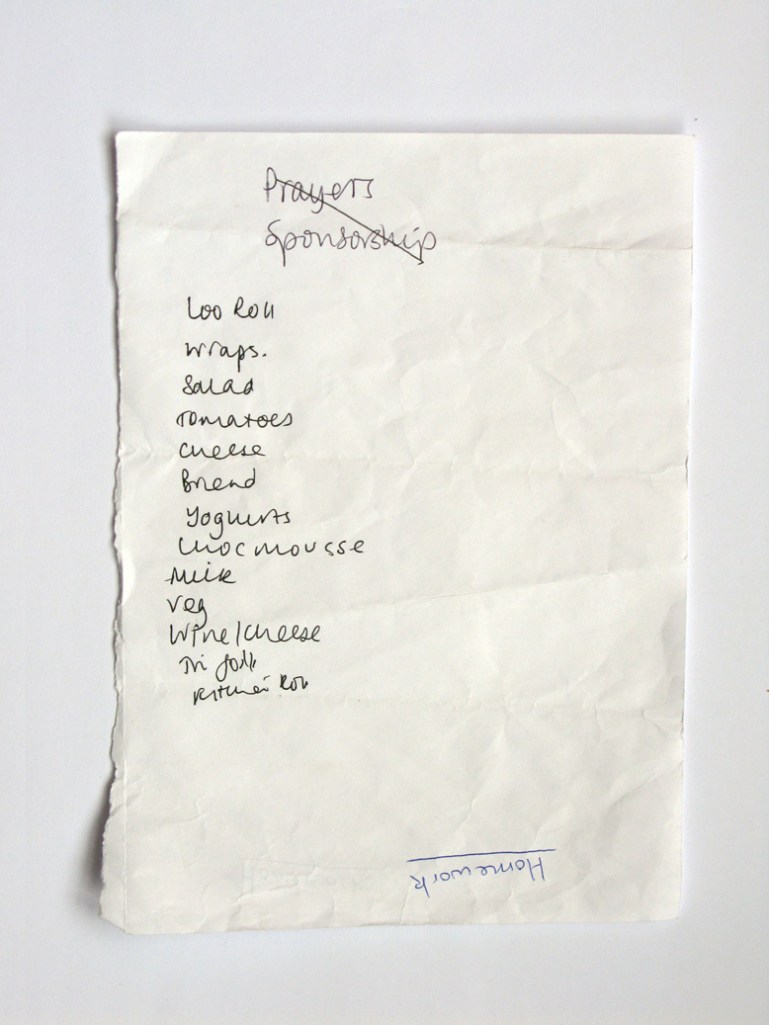 Prayers
Sponsorship
Loo Roll
Wraps.
Salad
Tomatoes
Cheese
Bread
Yoghurts
Choc mousse
Milk
Veg
Wine/Cheese
Tin foil
Kitchen Roll
Homework